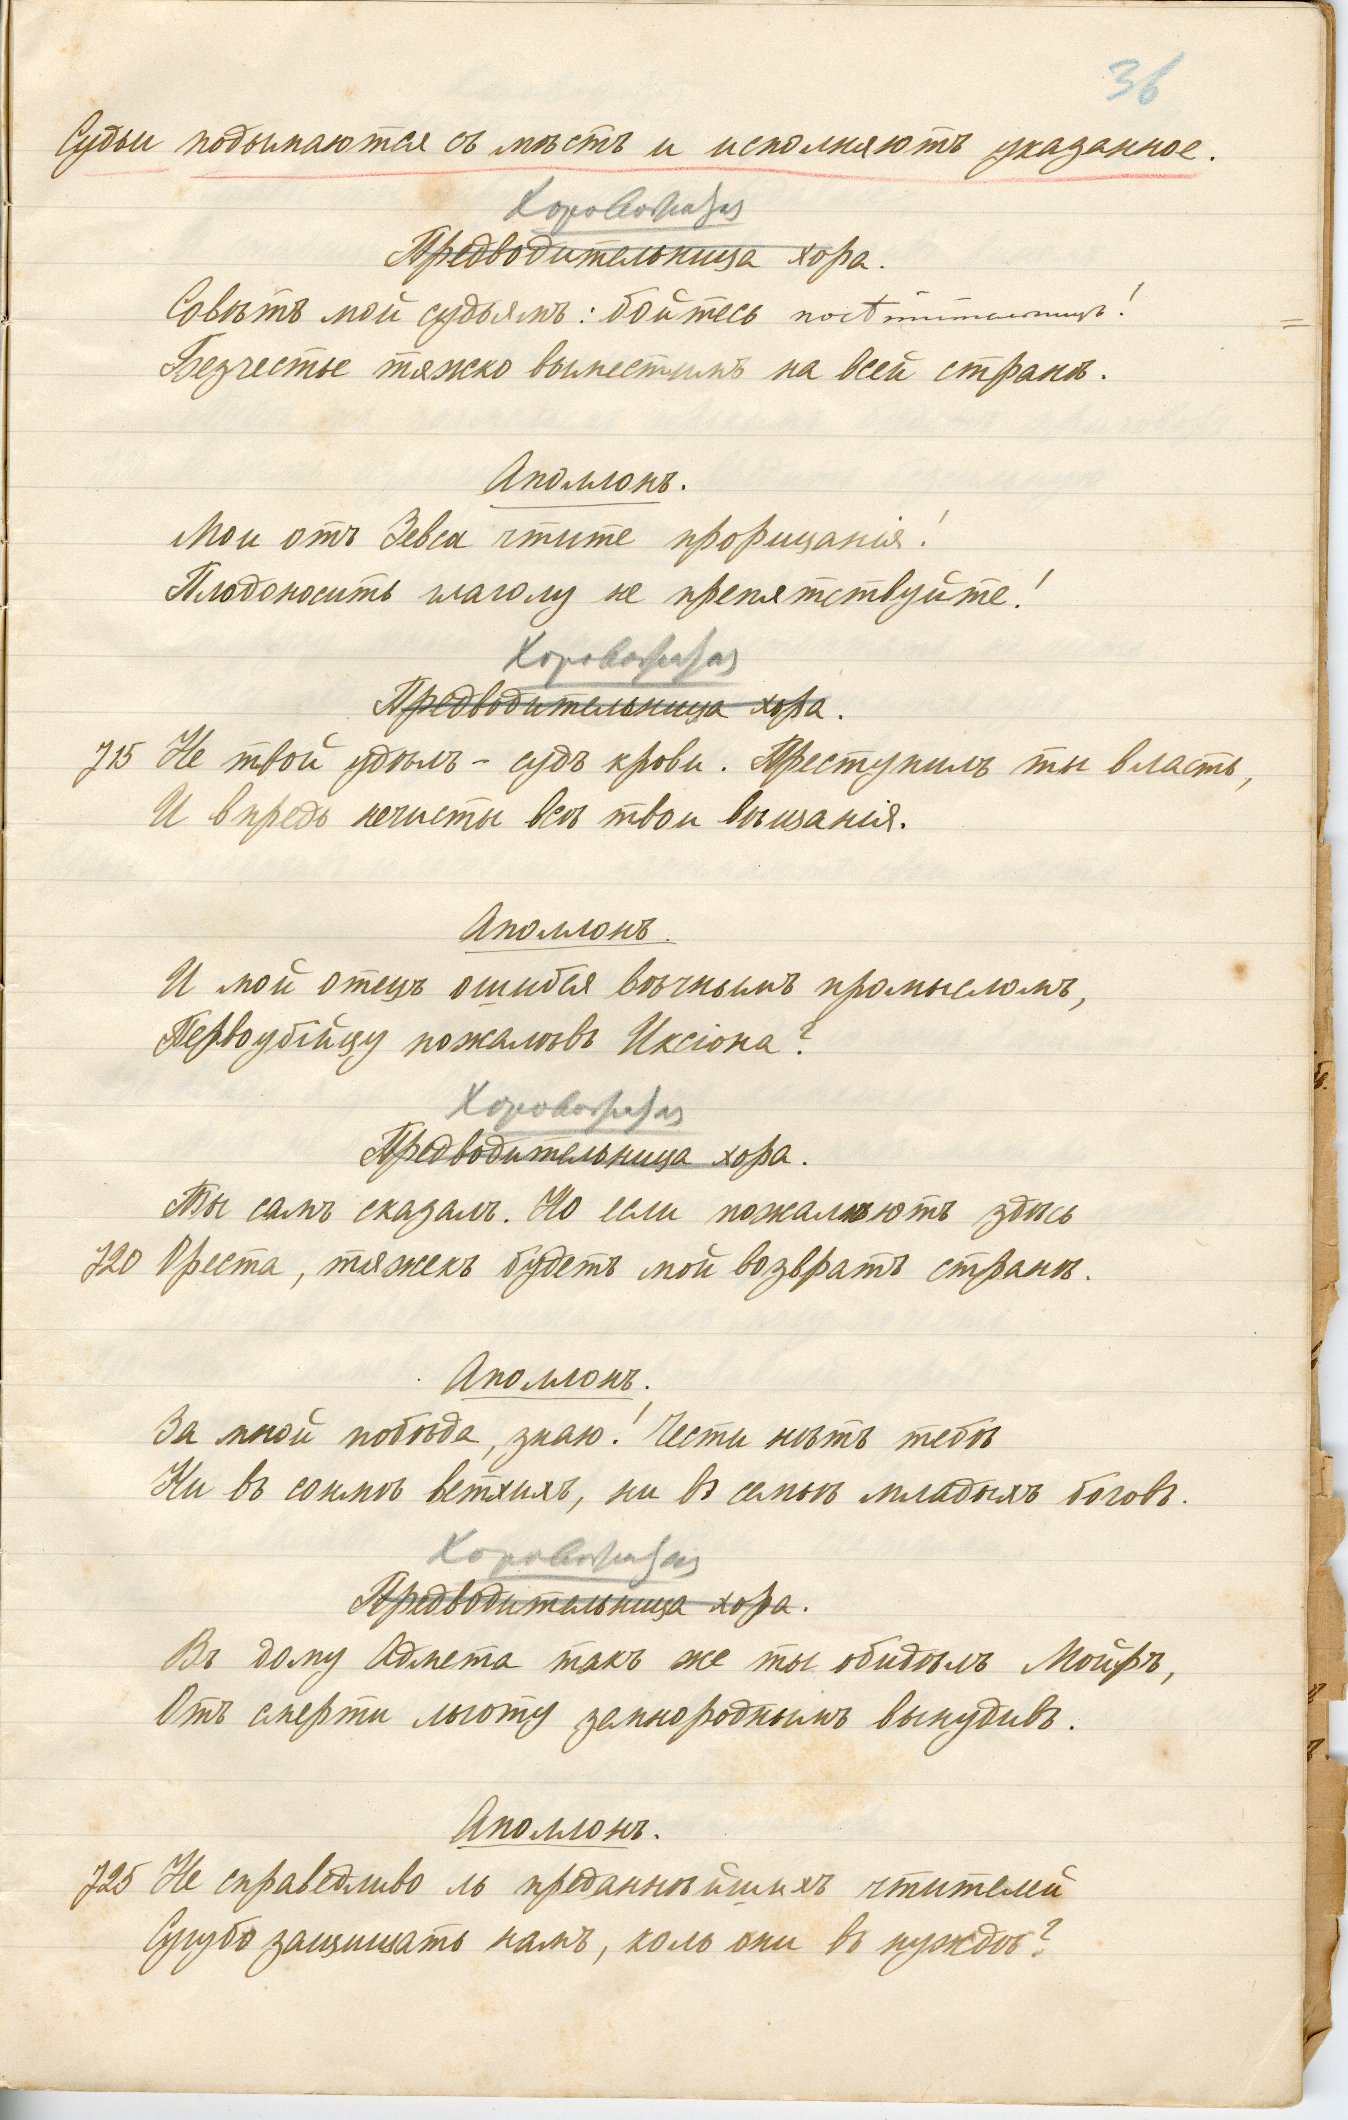 36
Судьи подымаются съ мѣстъ и исполняютъ указанное.
Хороводица
Предводительница хора.
Совѣтъ мой судьямъ: бойтесь посѣтительницъ!
Безчестье тяжко выместимъ на всей странѣ.
Аполлонъ.
Мои отъ Зевса чтите прорицанія!
Плодоносить глаголу не препятствуйте!
Хороводица
Предводительница хора.
715 Не твой удѣлъ – судъ крови. Преступилъ ты власть,
И впредь нечисты всѣ твои вѣщанія.
Аполлонъ.
И мой отецъ ошибся вѣчнымъ промысломъ,
Первоубійцу пожалѣвъ Иксіона?
Хороводица
Предводительница хора.
Ты самъ сказалъ. Но если пожалѣютъ здѣсь
720 Ореста, тяжекъ будетъ мой возвратъ странѣ.
Аполлонъ.
За мной побѣда, знаю! Чести нѣтъ тебѣ
Ни въ сонмѣ ветхихъ, ни въ семьѣ младыхъ боговъ.
Хороводица
Предводительница хора.
Въ дому Адмета такъ же ты обидѣлъ Мойръ,
Отъ смерти льготу земнороднымъ вынудивъ.
Аполлонъ.
725 Не справедливо ль преданнѣйшихъ чтителей
Сугубо защищать намъ, коль они въ нуждѣ?